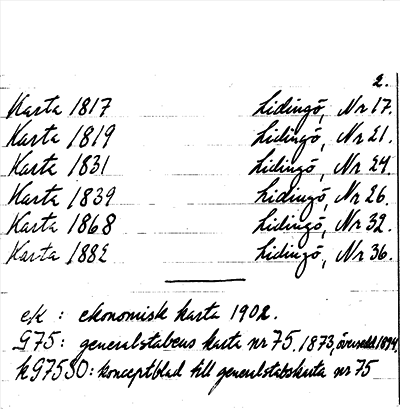 2.
Karta 1817 Lidingö, Nr 17.
Karta 1819 Lidingö, Nr 21.
Karta 1831 Lidingö, Nr 24
Karta 1839 Lidingö, Nr 26.
Karta 1868 Lidingö, Nr 32.
Karta 1882 Lidingö, Nr 36.
ek : ekonomisk karta 1902.
G75: generalstabens karta nr 75, 1873, översedd 1894.
kG75SO: konceptblad till generalstabskarta nr 75